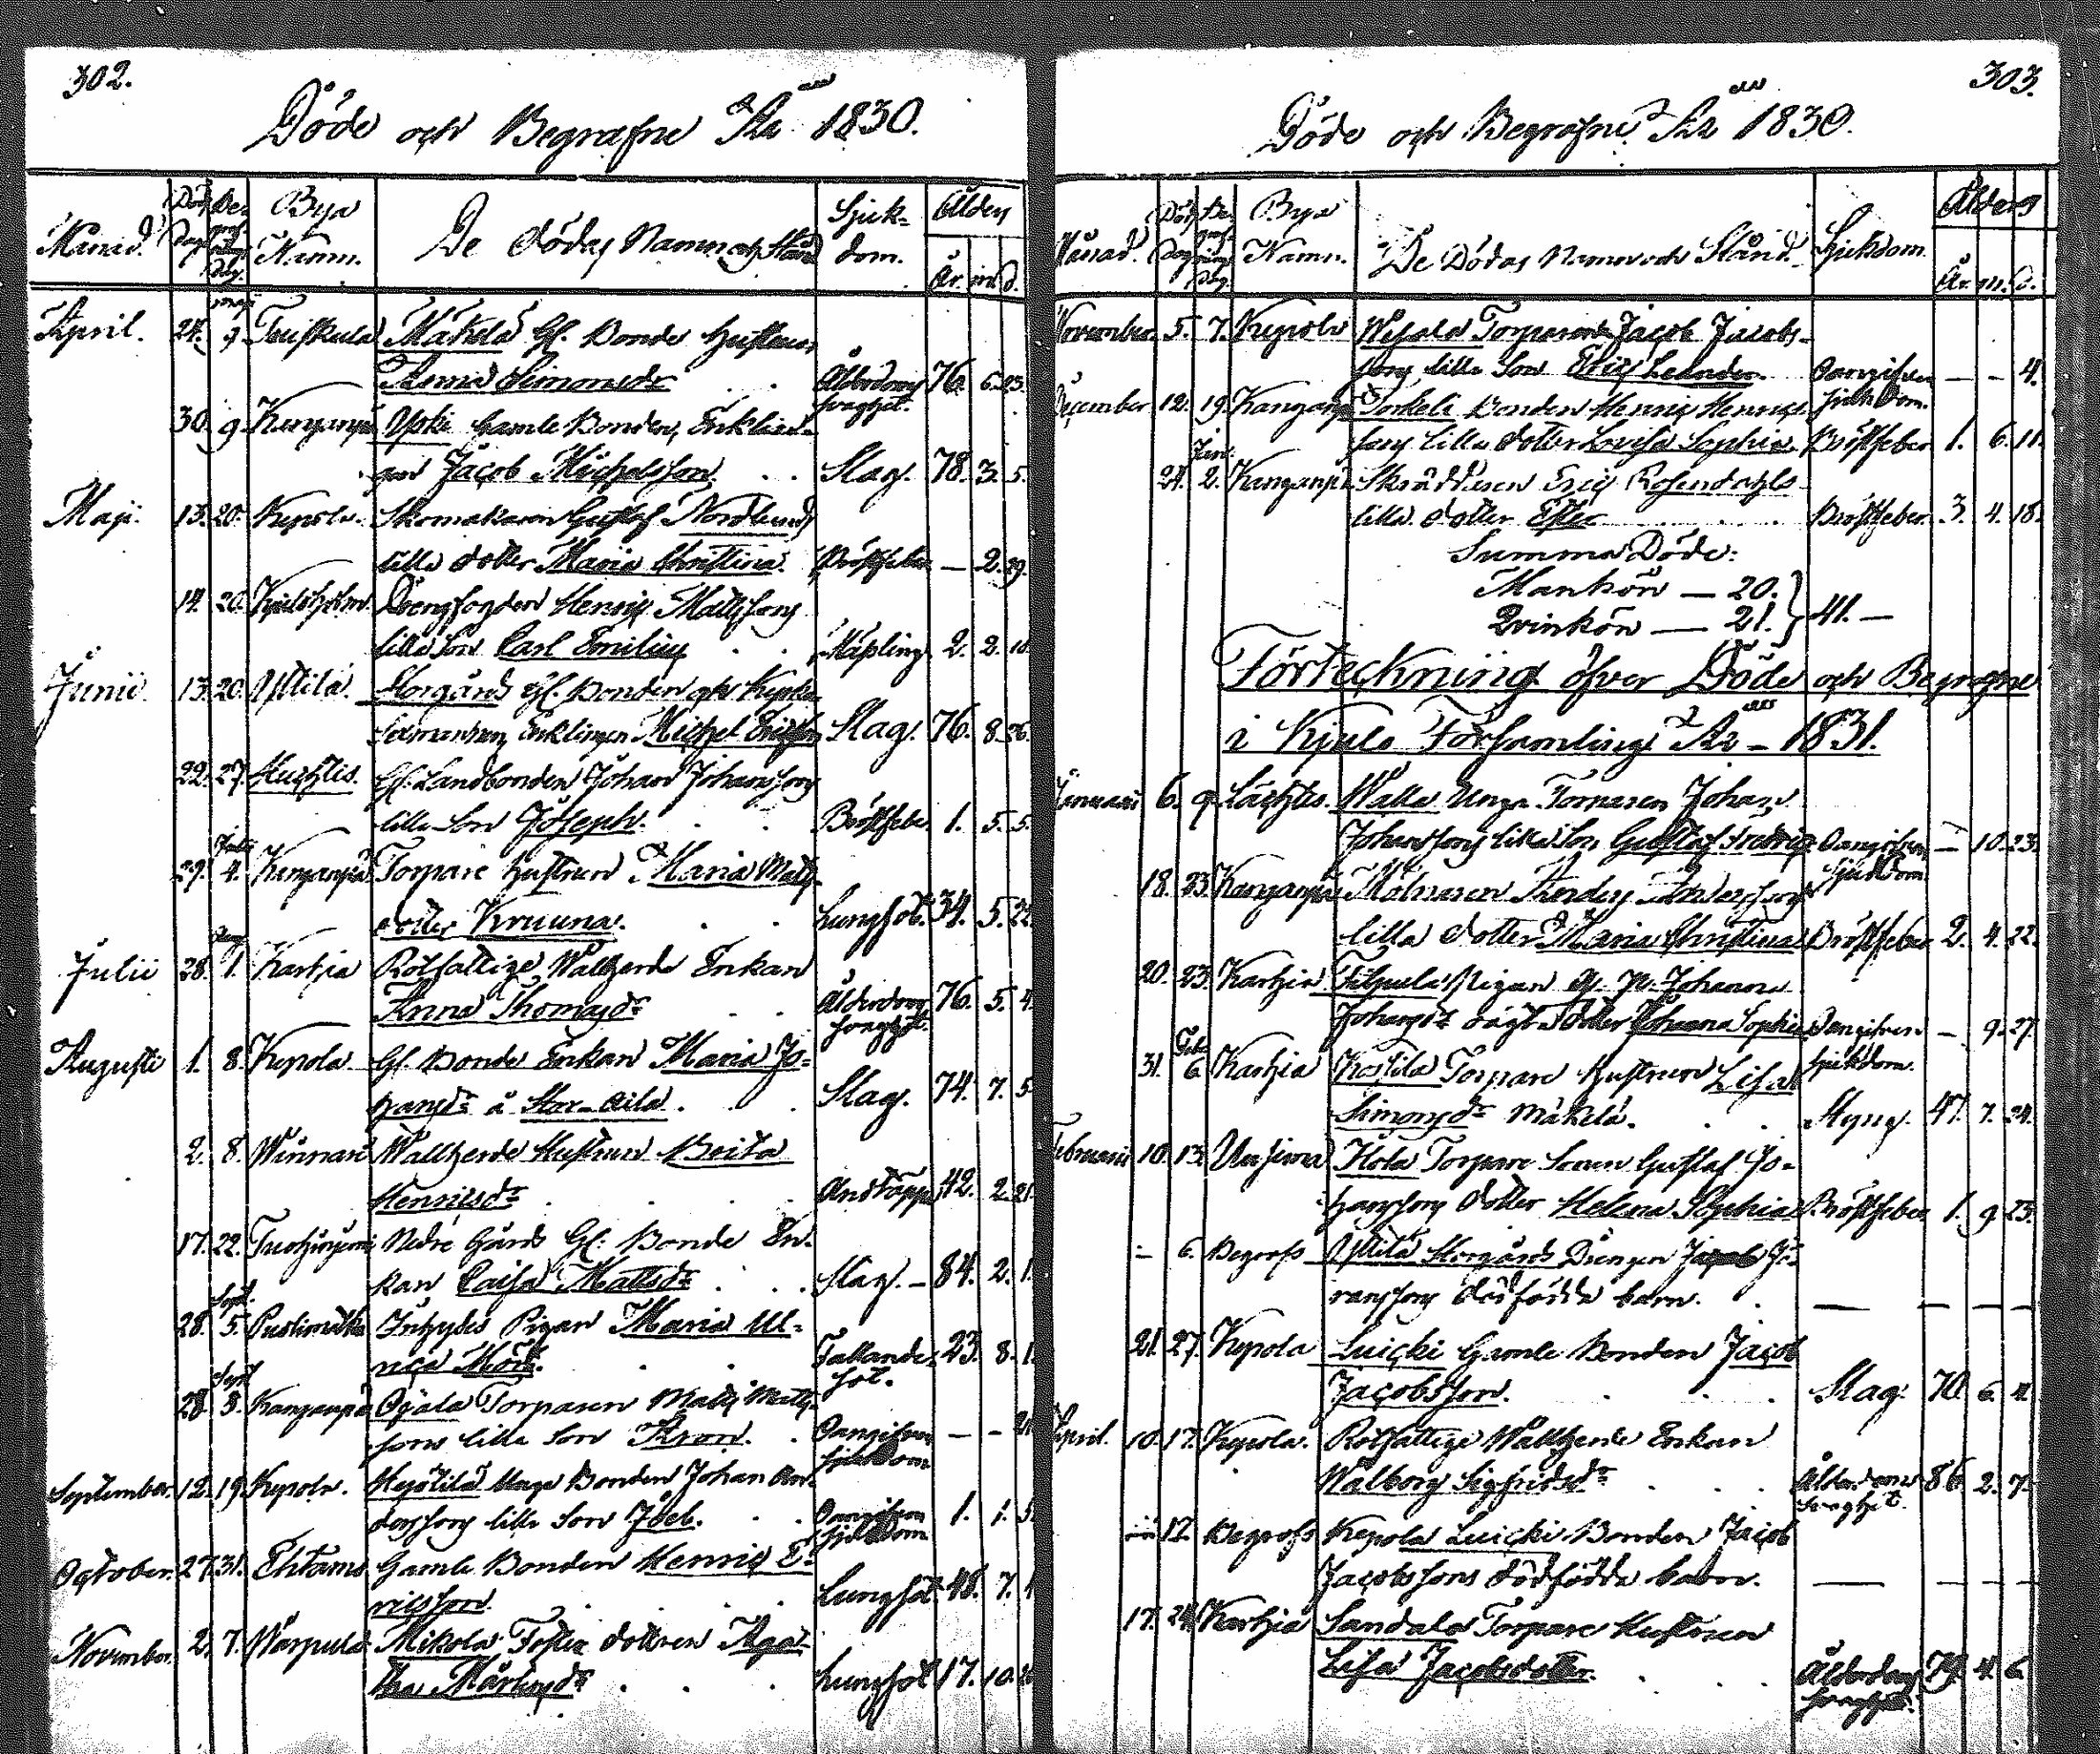 302.
Döde och Begrafne År 1830.
Månad. Död Dag Be- graf- nings Dag. Bya Namn. De Dödas Namn och Stånd Sjuk- dom. Ålder År. m. d.
maj
April. 24. 9 Mäkelä Gl. Bonde hustrun
Anna Simonsdr Ålderdoms 76. 6. 23.
svaghet.
30. 9 Kanganpä Yski Gamle Bonden, Enklin-
gen Jacob Michelsson. Slag. 78. 3. 5.
Maji. 13. 20. Kepola. Skomakaren Gustaf Nordlunds
lilla dotter Maria Christina. Bröstfeber — 2. 29.
14. 20. Kjuloholm Henric Mattssons
lilla Son Carl Emilius Mäßling 2. 2. 10.
Junii. 13. 20. Yttilä. Storgårds Gl. Bonden och
Enklingen Michel Ericsson Slag. 76. 8. 26.
22. 27. Huchtis. Gl. Landbonden Johan Johanssons
lilla Son Joseph. Bröstfeber 1. 5. 5.
Julii
29. 4. Kanganpä Torpare hustrun Maria Matts-
dotter Kruuna. Lungsot. 34. 5. 22
Aug
Julii 28. 1. Karhia Rotfattige Wallherde Enkan
Anna Thomasdr Ålderdoms 76. 5. 4.
svaghet.
Augusti 1. 8. Kepola Gl. Bonde Enkan Maria Jo-
hansdr å Stor-Äilä. Slag. 74. 7. 5.
2. 8. Winnari Wallherde Hustrun Beata
Henricsdr Andtäppa 42. 2. 21.
17. 22. Nedre Gårds Gl. Bonde En-
kan Caisa Mattsdr Slag. — 84. 2. 1.
Sept.
28. 5. Inhyses Pigan Maria Ul-
rica Mörk. Fallande- 23. 8. 1.
sot.
Sept
28. 5. Kanganpä Ojala Torparen Matts Matts-
sons lilla Son Aron. Oangifven — — 21.
sjukdom
September. 12. 19. Kepola. Hejtilä Unga Bonden Johan An-
derssons lilla Son Joel. Oangifven 1. 1. 5.
sjukdom
October. 27. 31. Ehtamo Gamle Bonden Henric E-
ricsson. Lungsot 48. 7. 1
November. 2. 7. Warpula Mikola Foster dottren Aga-
tha Mårtensdr Lungsot 17. 10.
303.
Döde och Begrafne År 1830.
Månad. Död Dag Be- graf- nings Dag. Bya Namn. De Dödas Namn och Stånd. Sjukdom. Ålders År. m. d.
November. 5. 7. Kepola Torparen Jacob Jacobs-
sons lilla Son Eric Leander. Oangifven — — 4.
sjukdom.
December 12. 19. Kanganpä Torkeli Bonden Henric Henrics-
sons lilla dotter Lovisa Sophia. Bröstfeber 1. 6. 11.
Jan.
24. 2. Kanganpä Skräddaren Eric Rosendahls
lilla dotter Ester Bröstfeber. 3. 4. 18.
Summa Döde:
Mankön — 20.
Qvinkön — 21. 41. —
Förteckning öfver Döde och Begrafne
i Kjulo Församling År — 1831.
Januari 6. 9. Lächtis. Walla Unga Torparen Johan
Johanssons lilla Son Gustaf Fredric Oangifven — 10. 23.
sjukdom.
18. 23. Kanganpä Mölnaren Anders Anderssons
lilla dotter Maria Christina Bröstfeber 2. 4. 22.
20. 23. Karhia Pigan Johanna
Johansdr oägta dotter Johanna Sophia Oangifven — 9. 27.
sjukdom.
Febr
31. 6. Karhia Kostila Torpare hustrun Lisa
Simonsdr Mäkelä. Styng. 47. 7. 24.
Februarii 10. 13. Hola Torpare Sonen Gustaf Jo-
hanssons dotter Helena Sophia Bröstfeber 1. 9. 23.
— 6. Begrofs Yttilä Storgårds Drengen Jacob Jö-
ranssons dödfödda barn. — — — —
21. 27. Kepola Luicki Gamle Bonden Jacob
Jacobsson. Slag. 70. 6. 4.
April. 10. 17. Kepola. Rotfattige Wallherde Enkan
Walborg Sigfridsdr Ålderdoms 86. 2. 7.
svaghet.
17. Begrofs Kepola Luicki Bonden Jacob
Jacobssons dödfödda barn. — — — —
17. 24. Karhia Sandala Torpare Hustrun
Lisa Jacobsdotter. Ålderdoms 79. 4. 6.
svaghet.